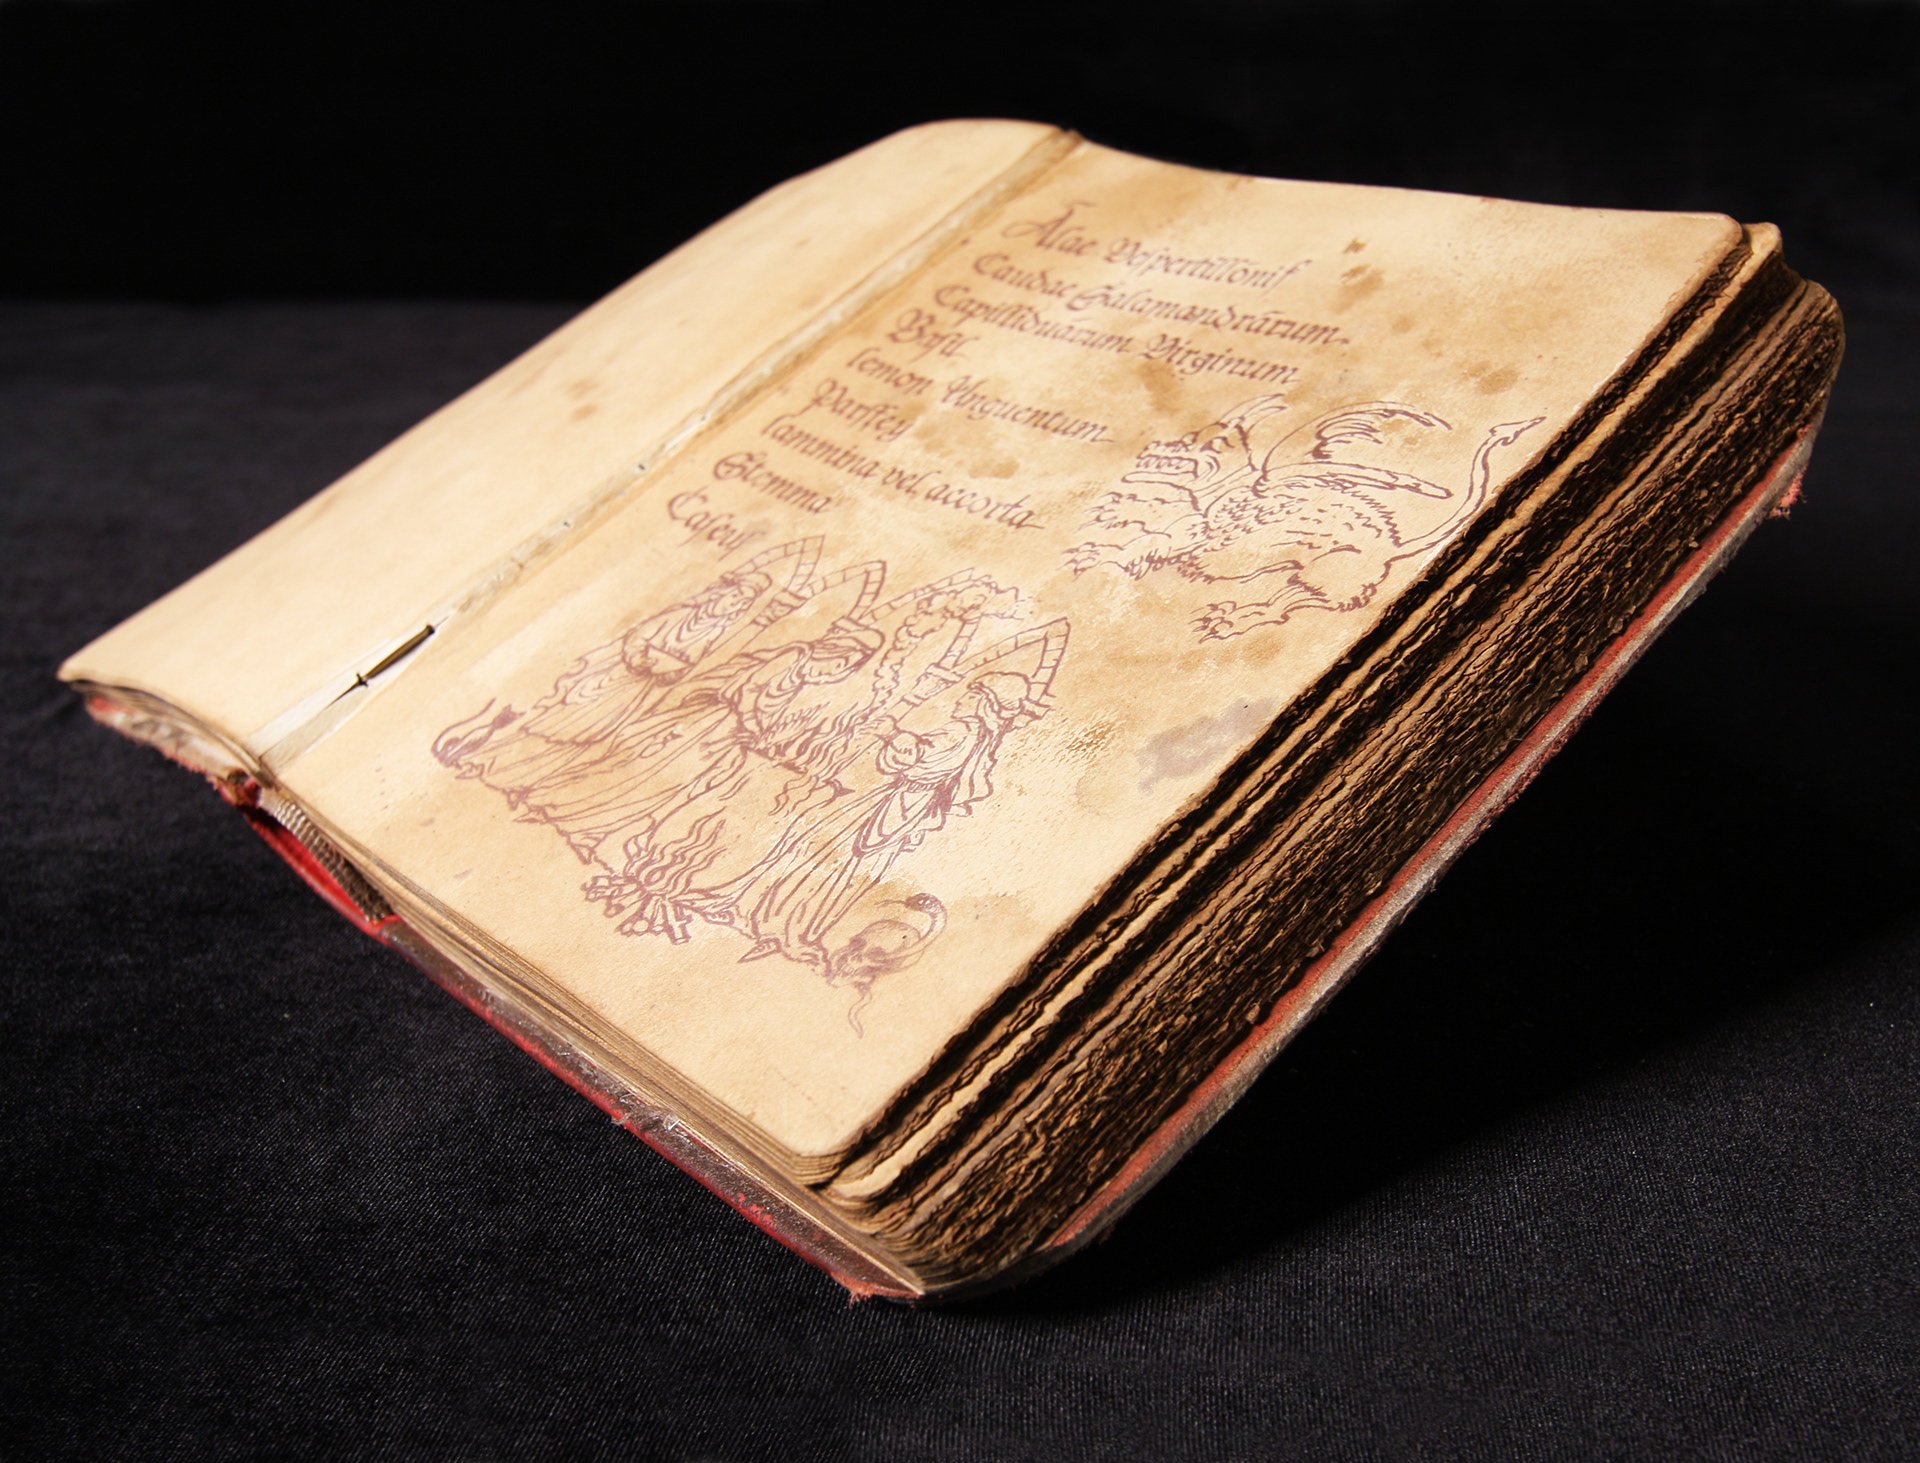 Alae Vespertillonis
Caudae Salamandrarum
Capilliduarum Virginum
Basil
lemon Unguentum
Parffey
lammina vel accorta
Stemma
Caseus